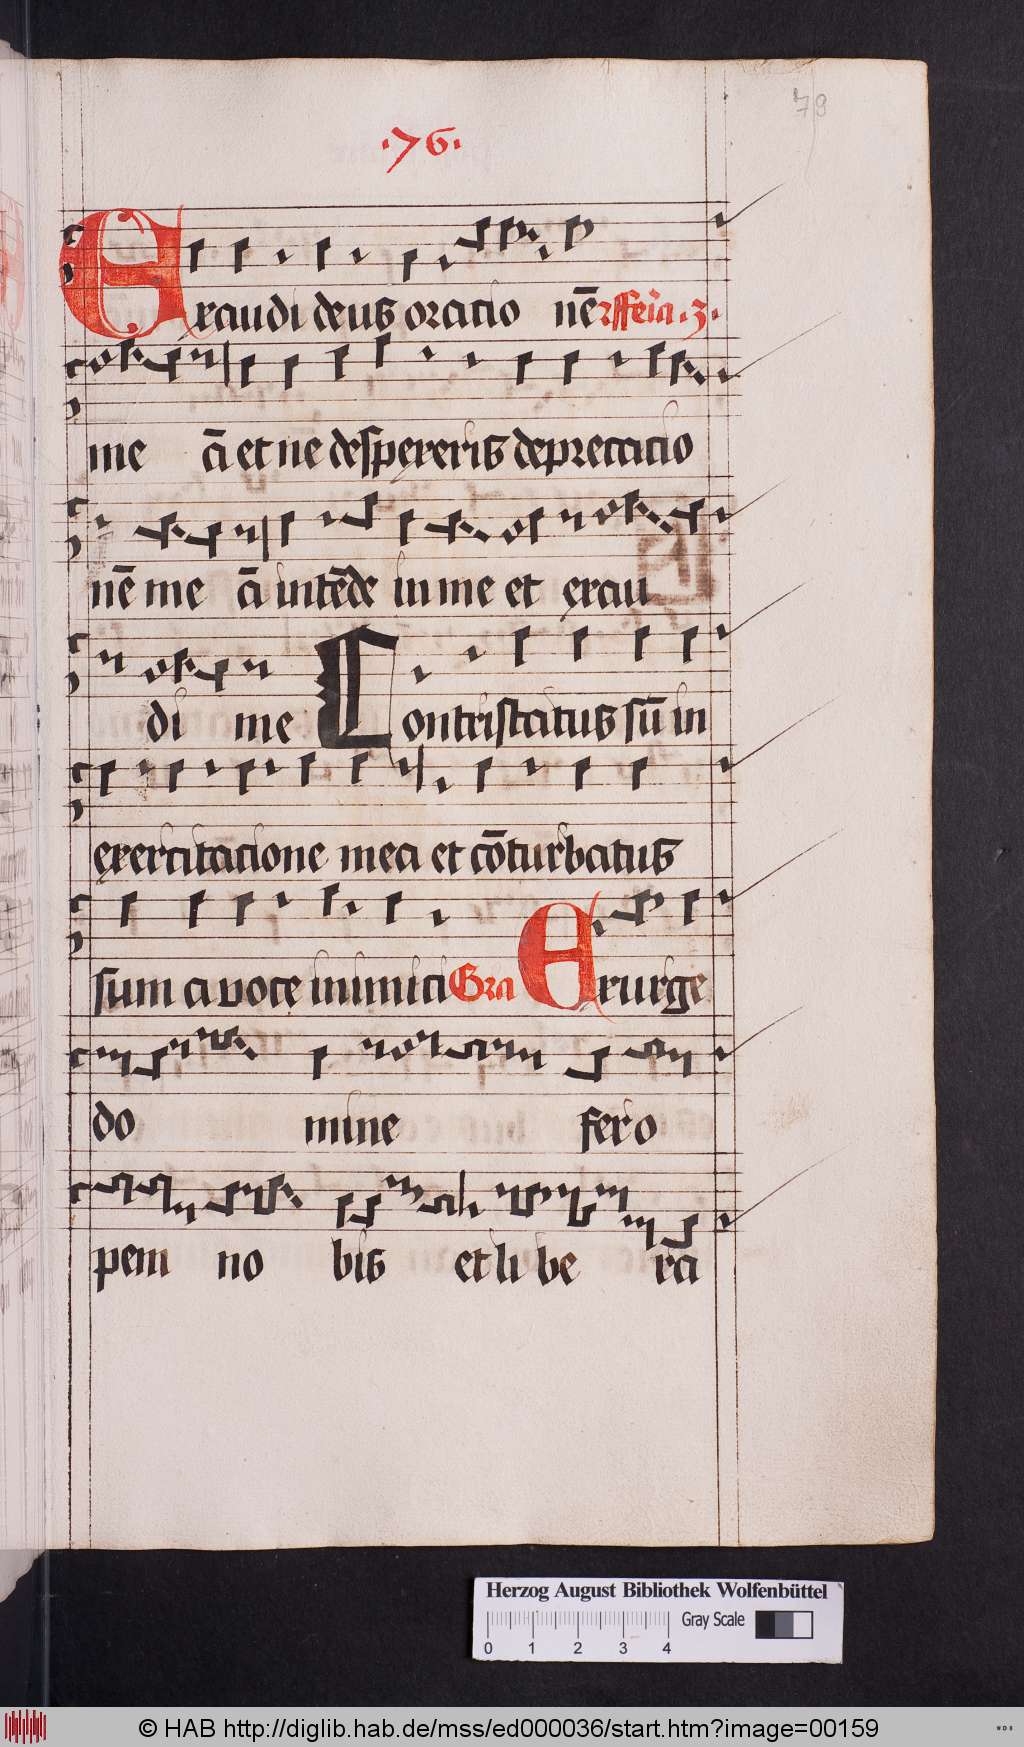 78
.76.
Exaudi deus oracio nē 2ſ feria .3.
me ā et ne despexeris deprecacio
nē me ā intēde in me et exau
di me Contristatus sū in
exercitacione mea et cōturbatus
sum a voce inimici Gra Exurge
do mine fer o
pem no bis et li be ra
Herzog August Bibliothek Wolfenbüttel
0 1 2 3 4 Gray Scale
© HAB http://diglib.hab.de/mss/ed000036/start.htm?image=00159